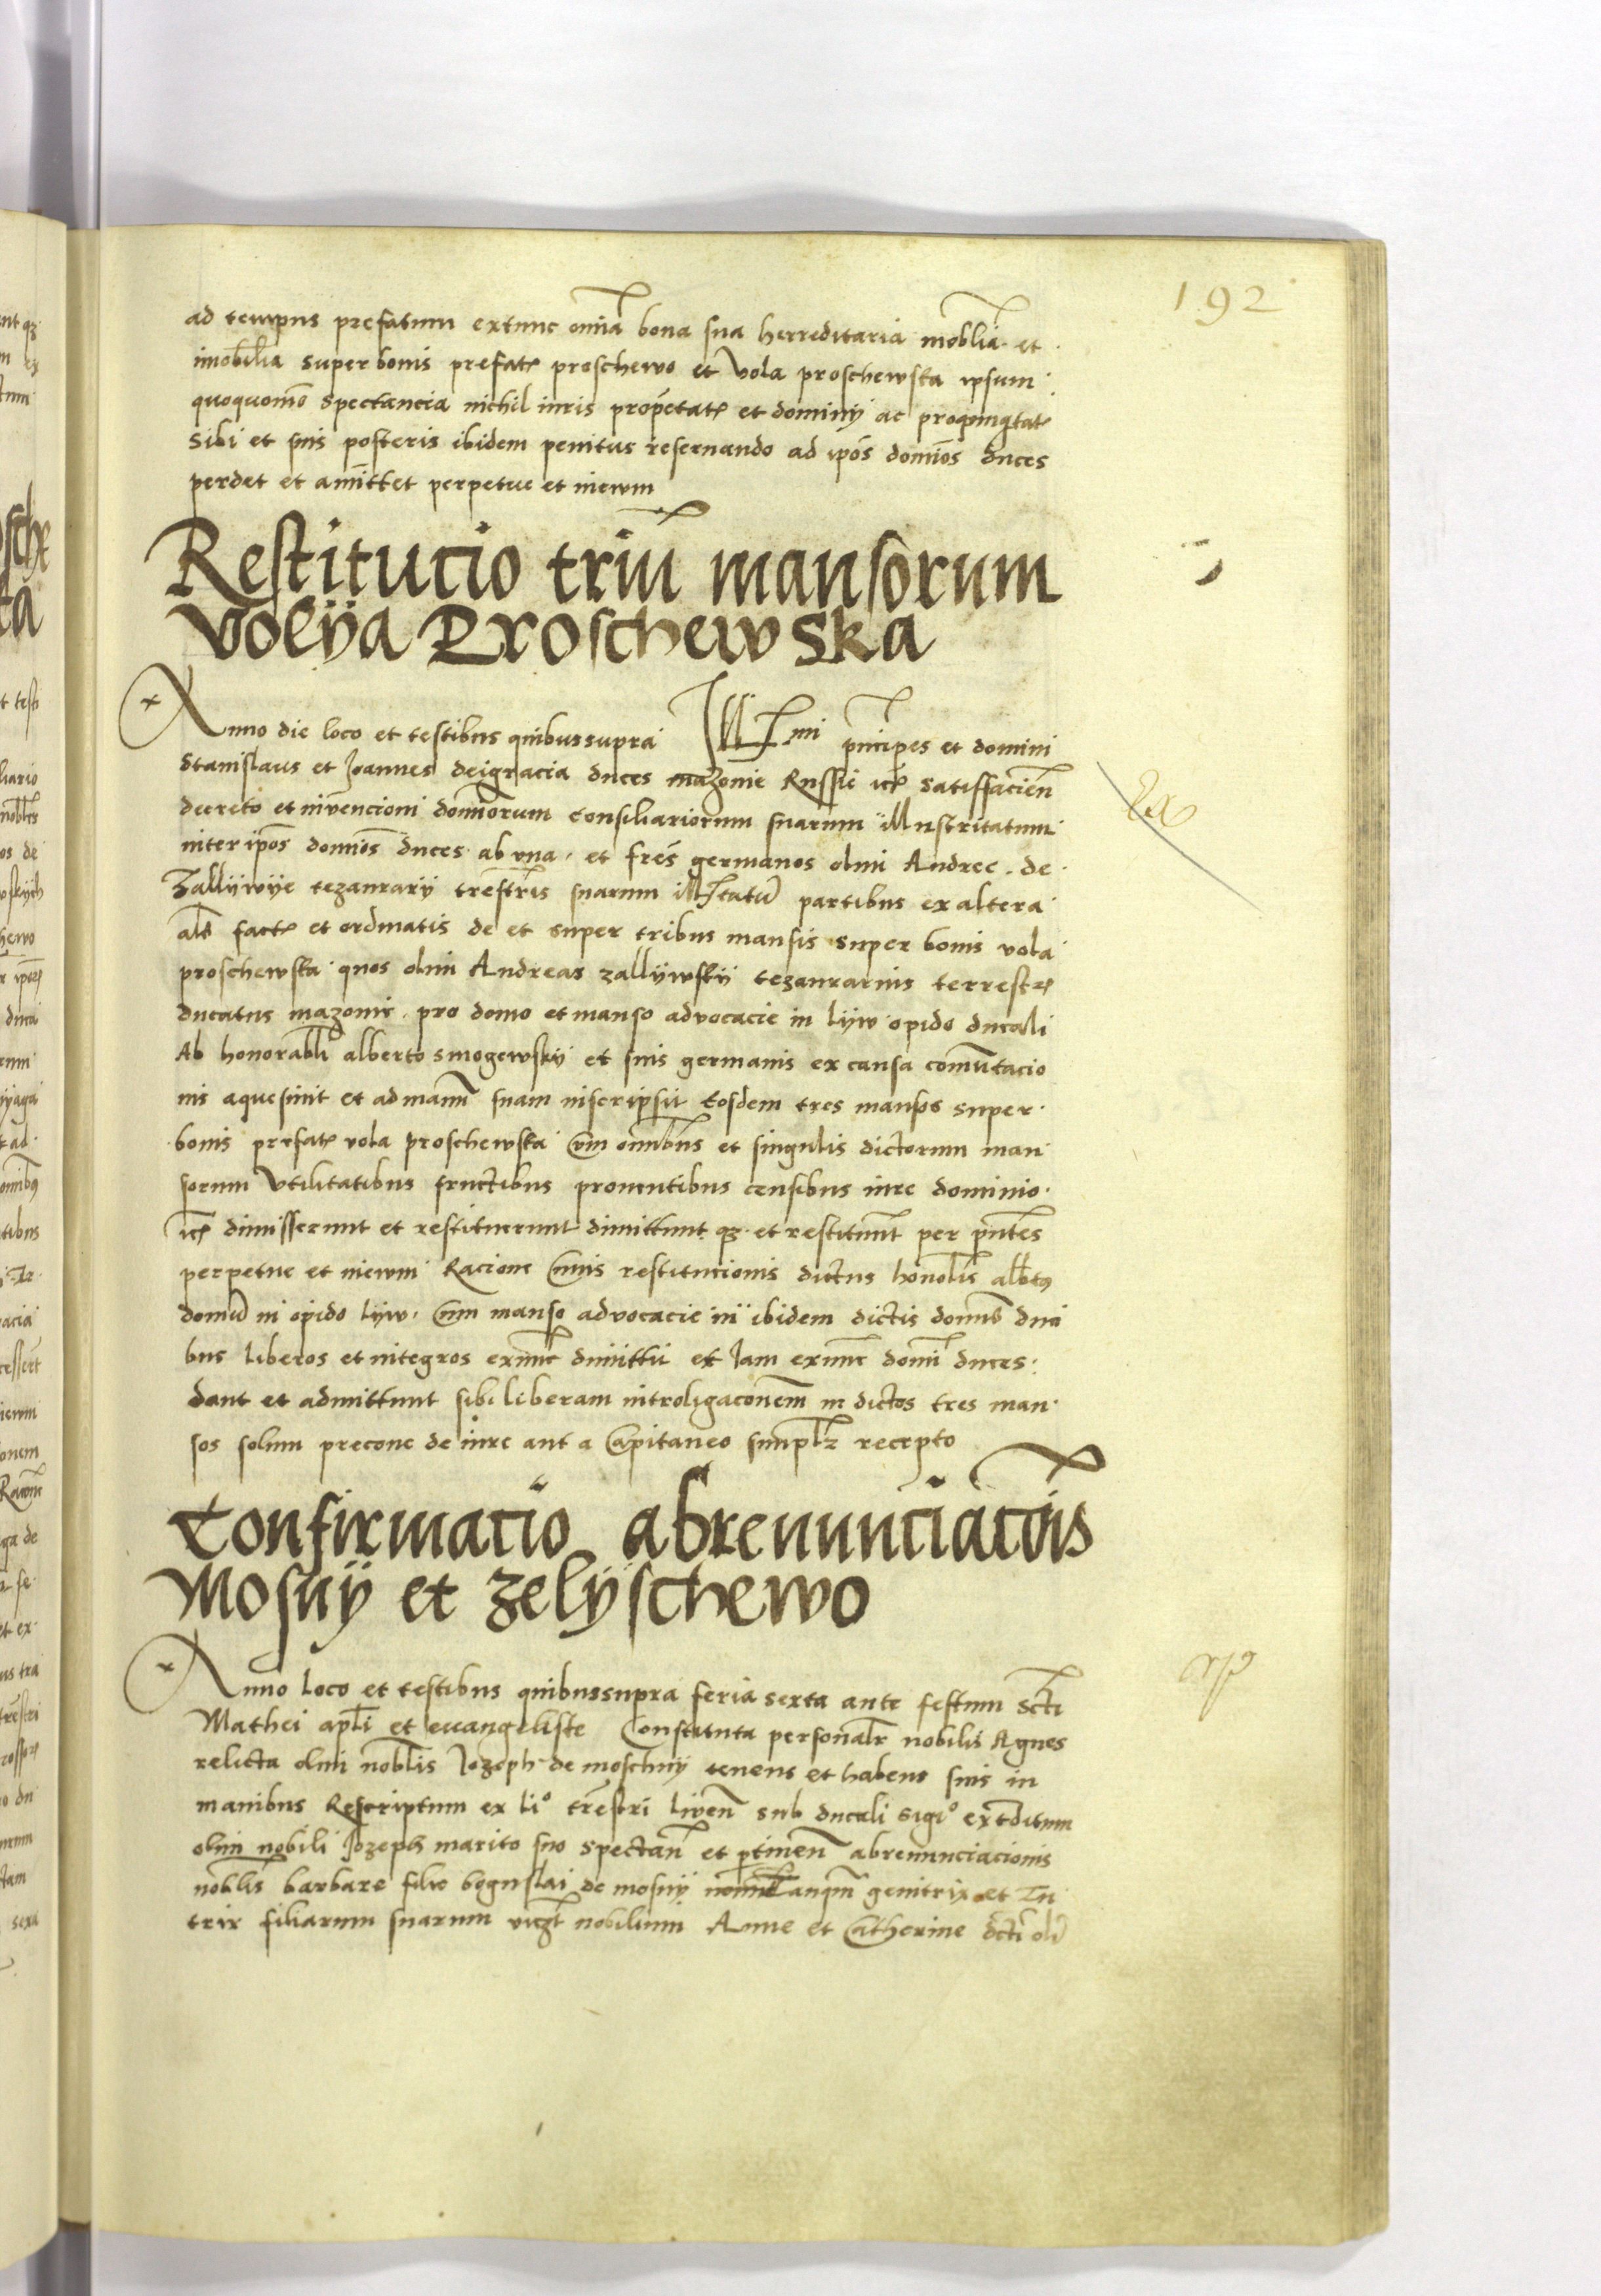 192
ad tempus prefatum extunc om̄ia bona sua herreditaria mōblia et
imobilia super bonis prefat proschewo et Vola proschewska ipsum
quoquomō spectancia nichil iuris propetat et dominÿ ac propinqtat
Sibi et suis posteris ibidem penitus reseruando ad ip̄os domīos duces
perdet et amīttet perpetue et inewm
Restitucio triū mansorum
Volÿa Proschewska
Anno die loco et testibus quibussupra Illr̄mi pncipes et domini
Stanislaus et Joannes deigracia duces mazouie Russie ic̄ satisfacien̄
decreto et invencioni domīorum Consiliariorum suarum illustritatum
inter ip̄os domīos duces ab vna et fres̄ germanos olmi Andree de
Zallÿwÿe tezaurarÿ tres̄tris suarum illr̄tatū partibus ex altera
als̄ fact et ordinatis de et super tribus mansis super bonis vola
proschewska quos olim Andreas zallÿwskÿ tezaurarius terrestr
ducatus mazouie pro domo et manso advocacie in Lÿw opido ducali
Ab honorabli alberto smogewskÿ et suis germanis ex causa comūtacio
nis aquesiuit et admanū suam inscripsit Eosdem tres mansos super
bonis prefat vola proschewska cūm omībus et singulis dictorum man
sorum Vtilitatibus fructibus prouentibus censibus iure dominio
ic̄ dimisserunt et restituerunt dimittunt qz et restituūt per pn̄tes
perpetue et inewm Racione cuius restitucionis dictus honoblis albtus
domū in opido Lÿw cum manso advocacie in ibidem dictis domīs duci
bus Liberos et integros exnūc dimittit et Jam exnunc domī duces
dant et admittunt sibi liberam introligaconem in dictos tres man
sos solum precone de iure aut a Capitaneo simplr recepto
Confirmacio abrenunciacōis
Mosnÿ et zelÿschewo
Anno Loco et testibus quibussupra feria sexta ante festum scti
Mathei apl̄i et euangeliste Constituta personalr nobilis Agnes
relicta olim nobl̄is Jozeph de moschnÿ tenens et habens suis in
manibus Rescriptum ex li° tres̄tri liven̄ sub ducali sigi° exteditum
olim nobili Jozeph marito suo spectan̄ et ptinen̄ abrenunciacionis
noblis barbare filie boguslai de mosnÿ tanqm̄ genitrix et Tu
trix filiarum suarum vicz̄ nobilium Anne et Catherine dcti oli